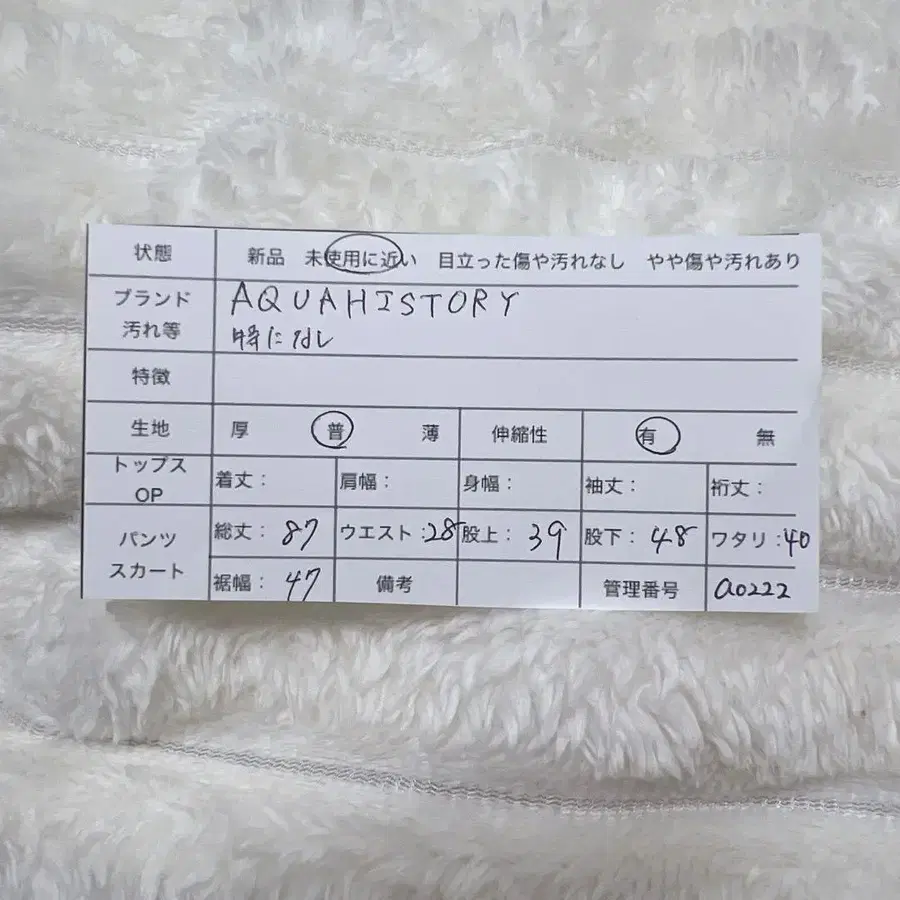 状態 新品 未使用に近い 目立った傷や汚れなし やや傷や汚れあり
ブランド AQUAHISTORY
汚れ等 特になし
特徴
生地 厚 普 薄 伸縮性 有 無
トップス
OP 着丈： 肩幅： 身幅： 袖丈： 裄丈：
パンツ
スカート
総丈：87 ウエスト：28 股上：39 股下：48 ワタリ：40
裾幅：47 備考 管理番号 a0222